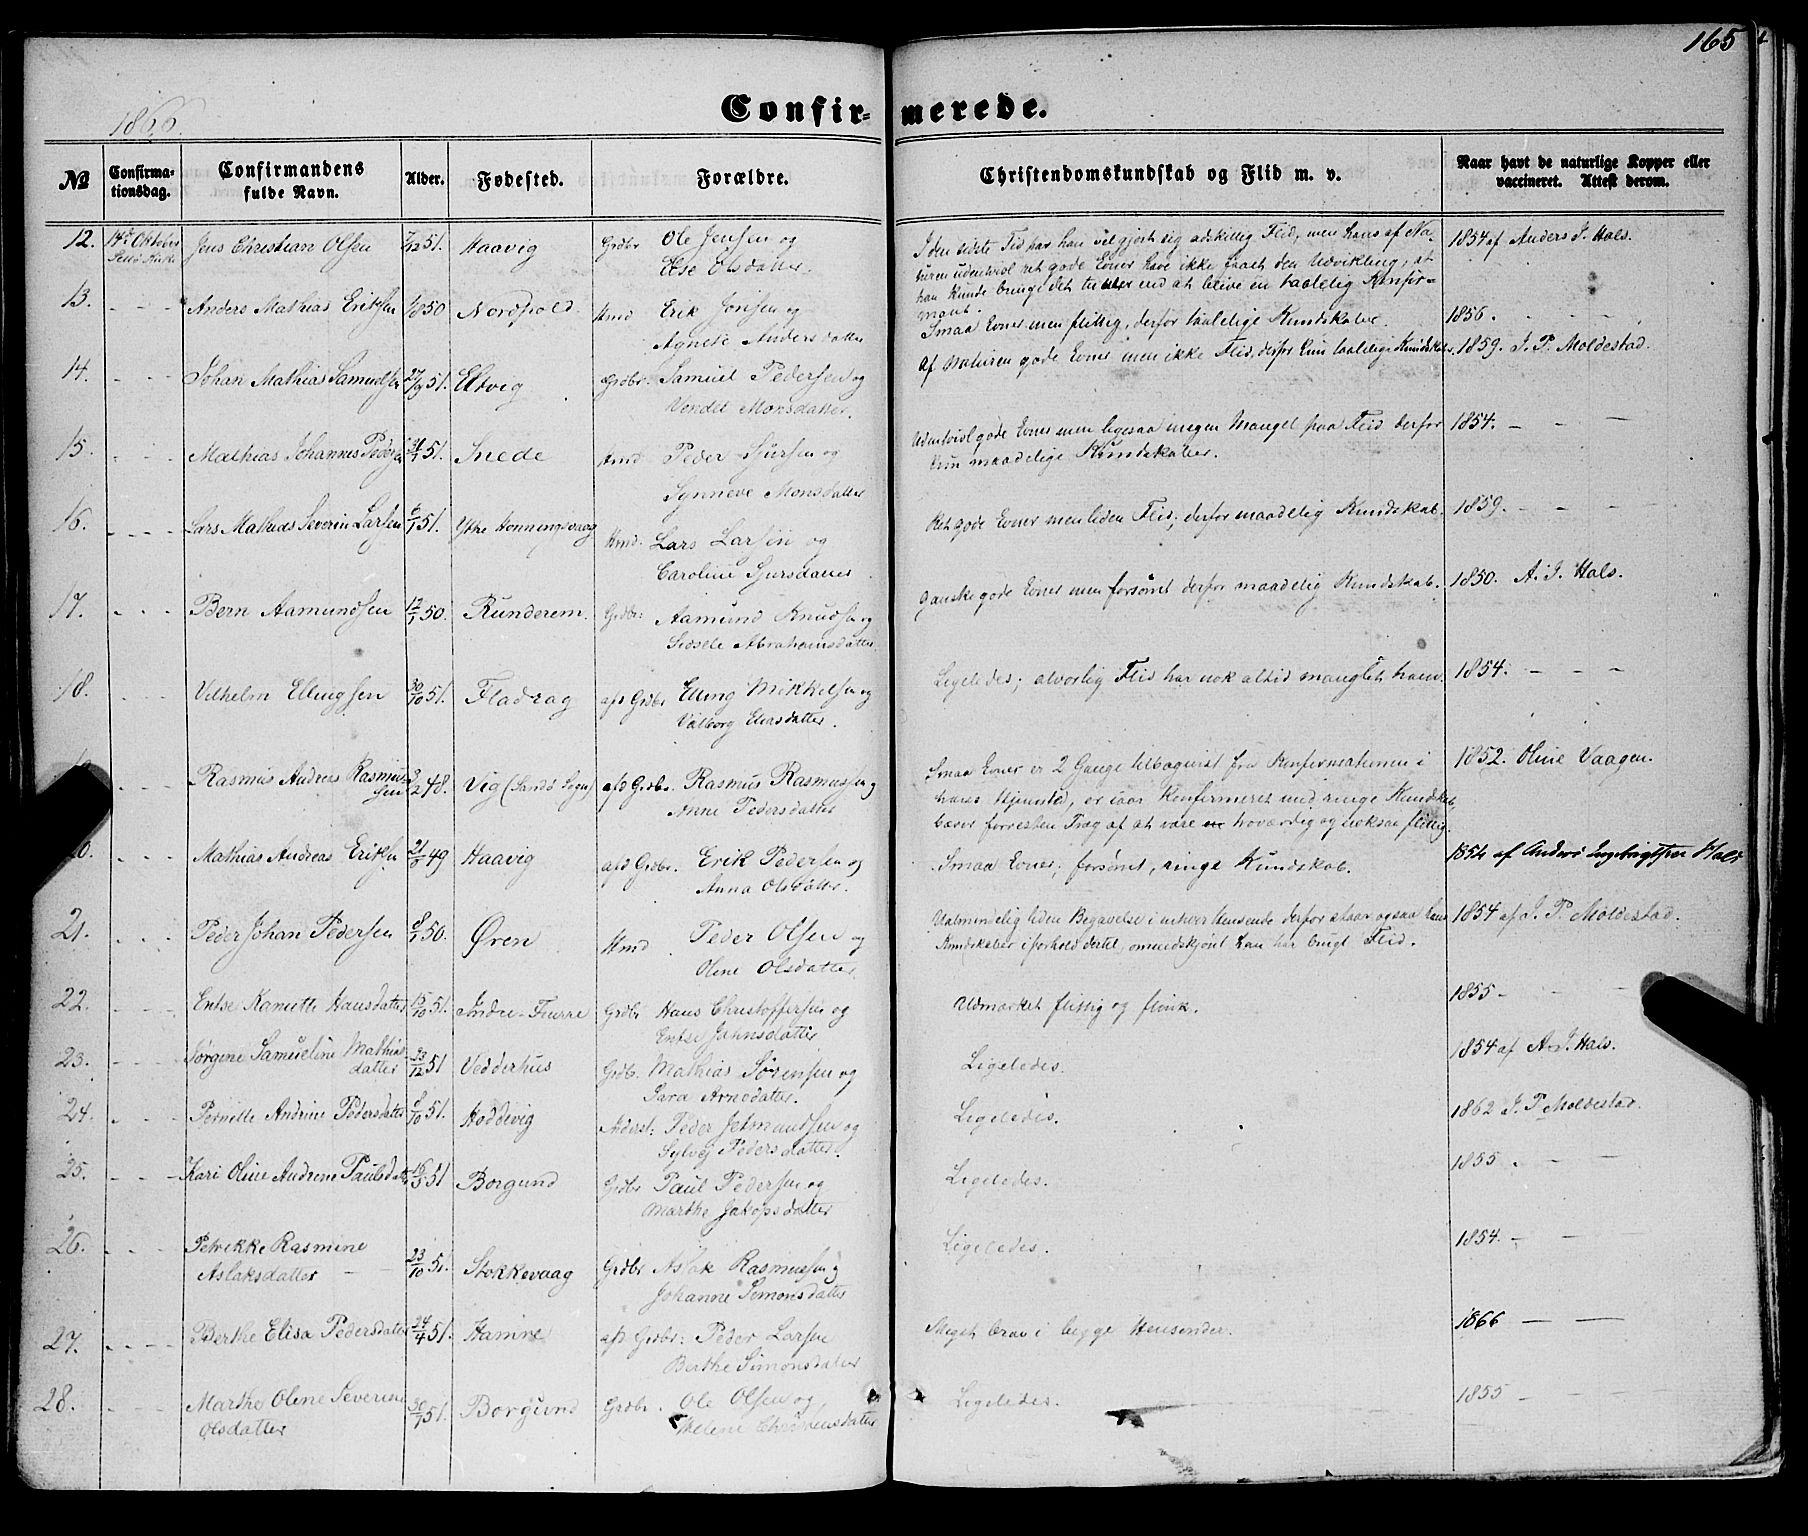 165
1866.
Confirmerede.
No
Confirmationsdag.
Confirmandens fulde Navn.
Alder.
Fødested.
Forældre.
Christendomskundskab og Flid m. v.
Naar havt de naturlige Kopper eller vaccineret. Attest derom.
12. 14de Oktober Jens Christian Olsen 7/12 51. Haavig Grdbr Ole Jensen og
Else Olsdatter.
I den sidste Tid har han vel gjort sig adskillig Flid, men hans af Na-
turen udentvivl ret gode Evner have ikke faaet den Udvikling, at
han kunde bringe det til end at blive en taalelig Konfir-
mant.
1854 af Anders J. Hals.
13. - - - Anders Mathias Eriksen 1/8 50 Nordpold. Hmd Erik Jonsen og
Agnete Andersdatter
Smaa Evner men flittig, derfor taalelige Kundskaber.
1856. - - -
14. - - - Johan Mathias Samuelsen 27/9 51. Eltvig Grdbr. Samuel Pedersen og
Vendel Monsdatter.
Af Naturen gode Evner men ikke Flid, derfor kun taalelige Kundskaber.
1859. J. P. Moldestad.
15. - - - Mathias Johannes Pedersen 51. Indede Hmd Peder Sjursen og
Synneve Monsdatter
Udentvivl gode Evner men ligesaa megen Mangel paa Flid derfor
kun maadelige Kundskaber.
1854. - - -
16. - - - Lars Mathias Severin Larsen 6/1 51. Ytre Honningsvaag Hmd. Lars Larsen og
Caroline Sjursdatter
Ret gode Evner men liden Flid; derfor maadelig Kundskab.
1859. - - -
17. - - - Bern Aamundsen 12/1 50. Runderem. Grdbr: Aamund Knudsen og
Sidsele Abrahamsdatter.
Ganske gode Evner men forsømt derfor maadelig Kundskab.
1850. A. J. Hals.
18. - - - Vilhelm Ellingsen 30/10 51. Fladrag afd Grdbr Elling Mikkelsen og
Valborg Eliasdatter.
Ligeledes; alvorlig Flid har nok altid manglet ham.
1854. - - -
- - - Rasmus Andreas Rasmussen 3/2 48. Vig (Sandø Sogn) afd Grdbr. Rasmus Rasmussen og
Anne Pedersdatter
Smaa Evner er 2 Gange tilbagevist fra Konfirmationen i
hans Hjemsted, er iaar Konfirmeret med ringe Kundskab,
bærer forresten Præg af at være troværdig og noksaa flittig.
1852. Oline Vaagen.
20. - - - Mathias Andreas Eriksen 49 Haavig afd Grdbr. Erik Pedersen og
Anna Olsdatter.
Smaa Evner; forsømt, ringe Kundskab.
1854 af Anders Ingebrigtsen Hals
21. - - - Peder Johan Pedersen 8/1 50. Øren Hmd Peder Olsen og
Oline Olsdatter
Ualmindelig liden Begavelse i enhver Henseende derfor staar ogsaa hans
Kundskaber i forhold dertil, omendskjønt han har brugt Flid.
1854 af J. P. Moldestad.
22. - - - Entse Kanutte Hansdatter 15/10 51. Indre-Furre Grdbr Hans Christoffersen og
Entse Jahnsdatter
Udmærket flittig og flink.
1855 - - -
23. - - - Jørgine Samueline Mathias-
datter 23/12 51 Vedderhus Grdb. Mathias Sørensen og
Sara Arnedatter.
Ligeledes.
1854 af A. J. Hals.
24. - - - Pernille Andrine Pedersdatter 8/10 51. Hoddevig Aderst: Peder Jetmundsen og
Sylvej Pedersdatter
Ligeledes.
1862 J. P Moldestad.
25. - - - Kari Oline Andrene Paulsdatter 16/5 51 Borgund Grdbr Paul Pedersen og
Marthe Jakopsdatter
Ligeledes.
1855 . - -
26. - - - Petrikke Rasmine
Aslaksdatter 23/10 51 Stokkevaag Grdbr Aslak Rasmussen og
Johanne Simonsdatter
Ligeledes.
1854. - - -
27. - - - Berthe Elisa Pedersdatter 24/4 51. Hamne afd Grdbr: Peder Larsen
Berthe Simonsdatter
Meget brav i begge Henseender.
1866 - -
28. - - - Marthe Oline Severine
Olsdatter 30/7 51. Borgund Grdbr. Ole Olsen og
Helene Christensdatter
Ligeledes.
1855 - -